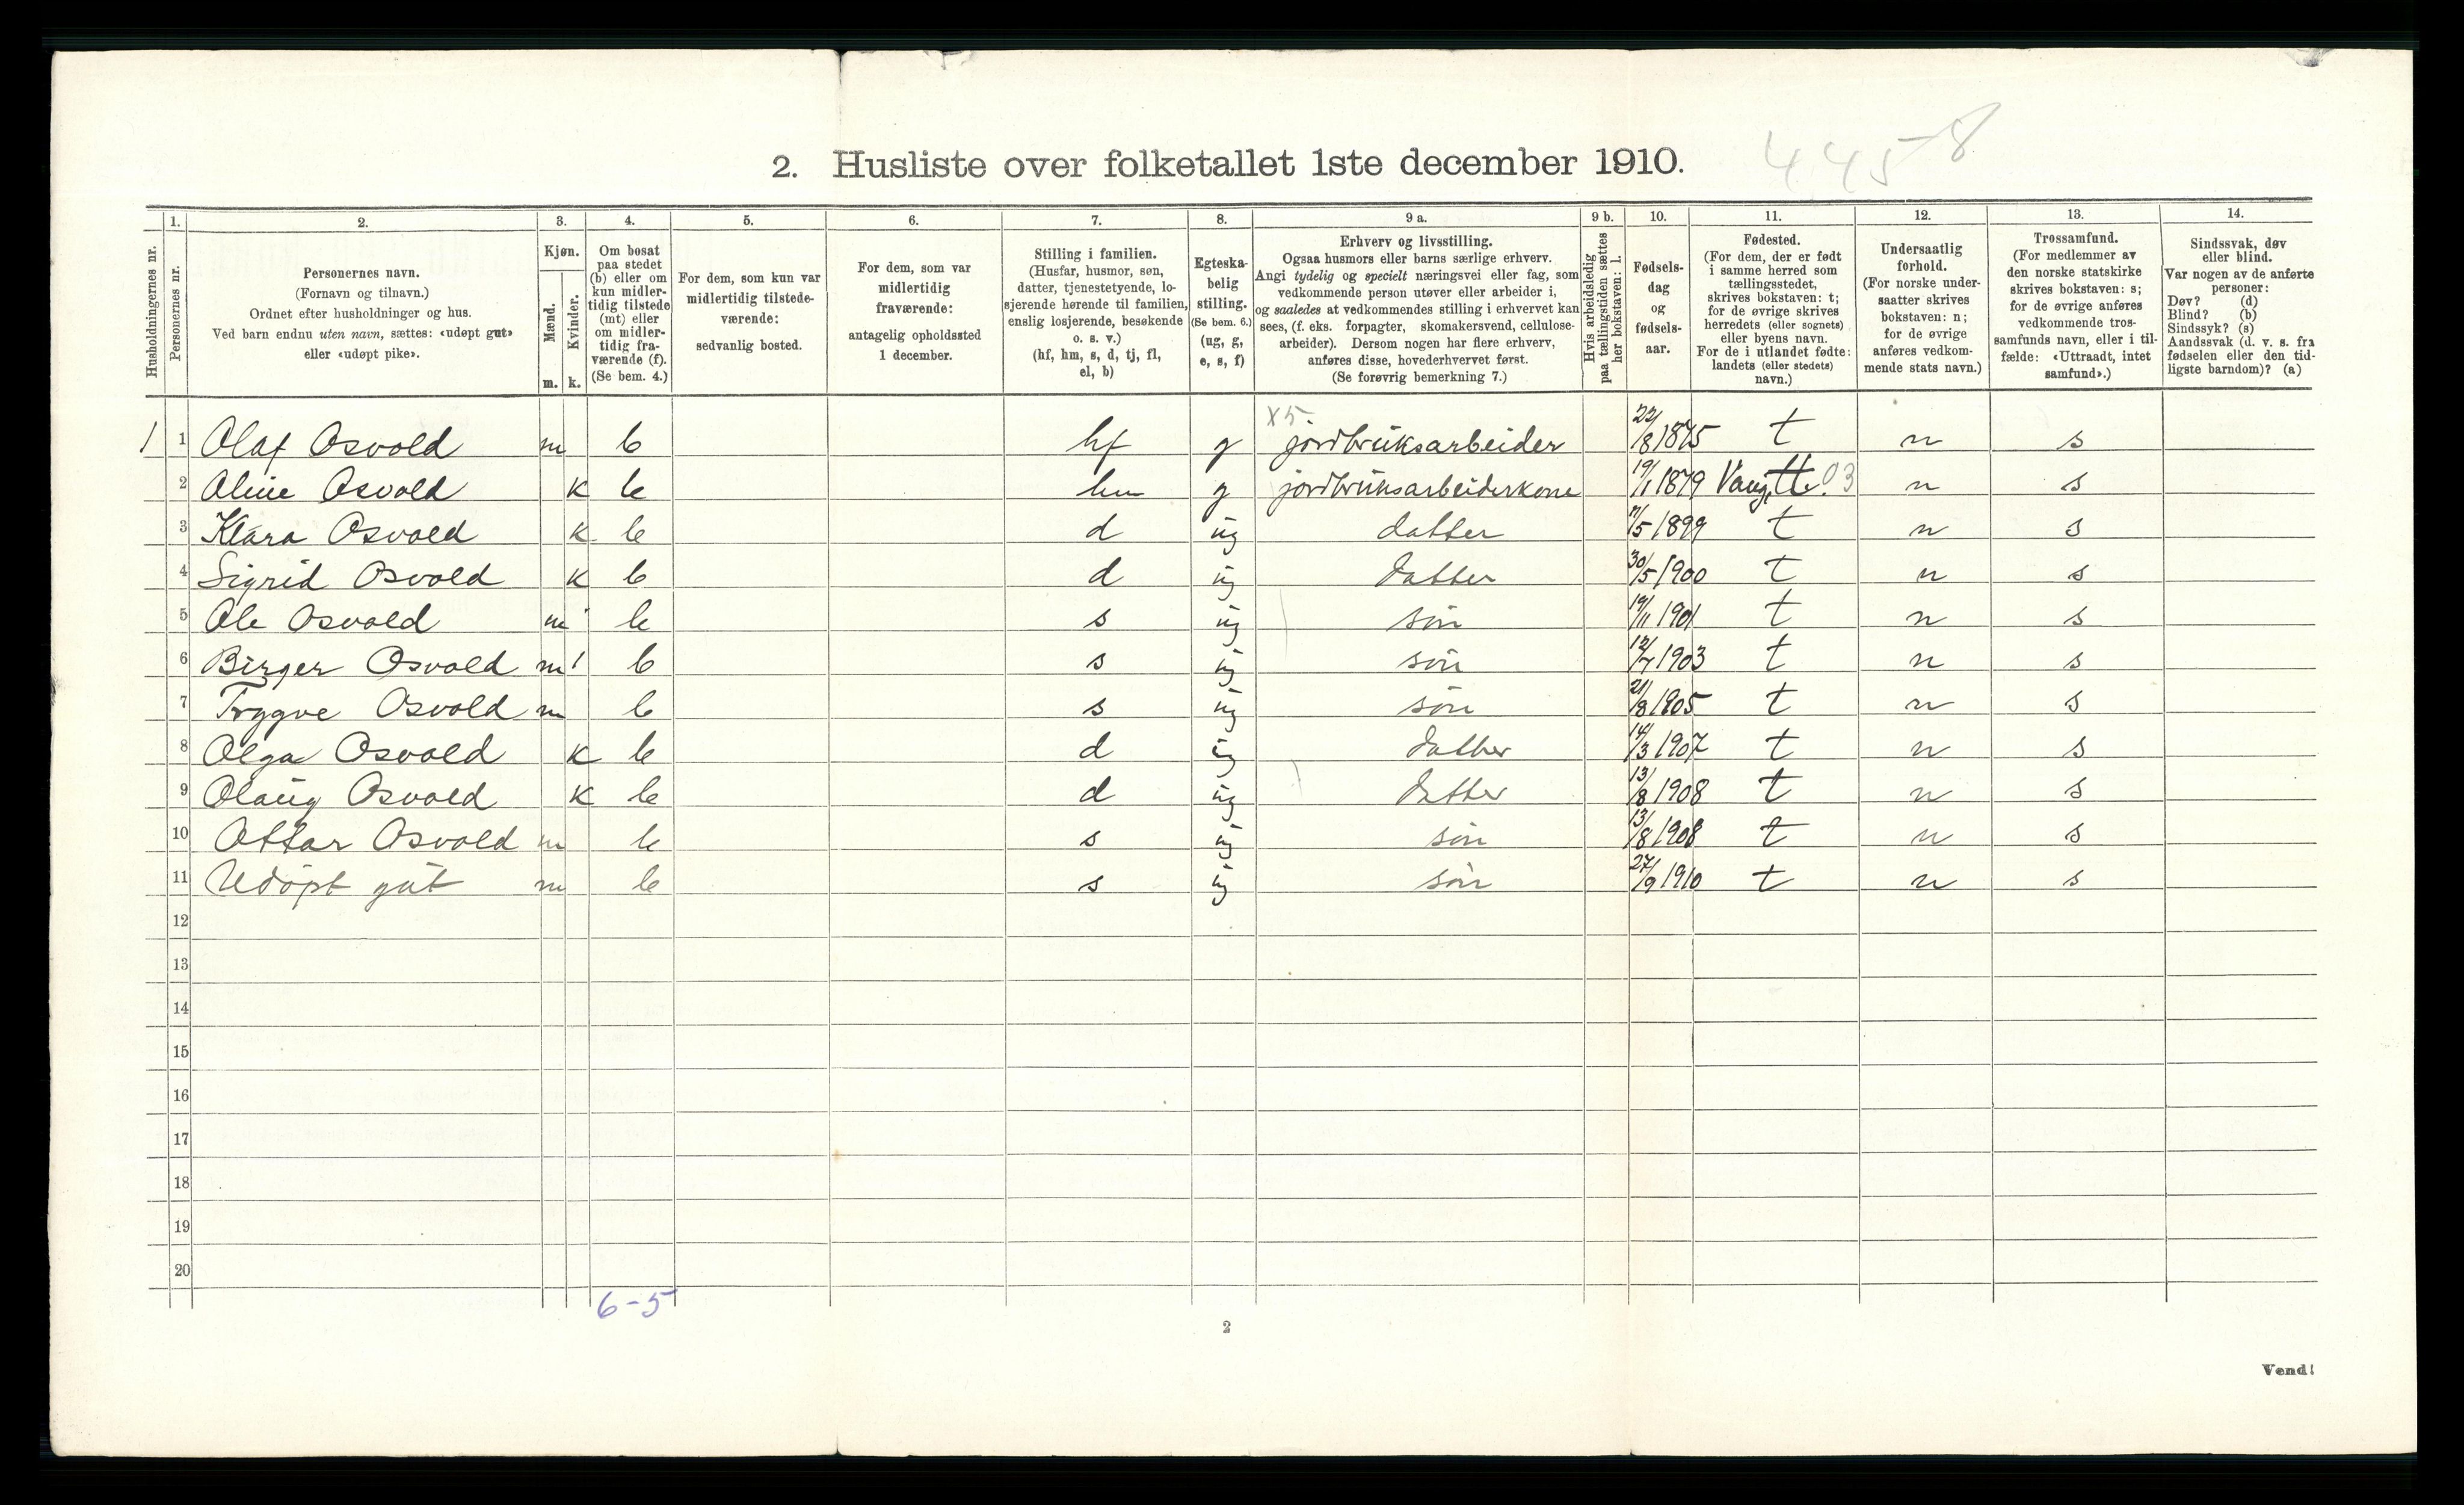 445-8
2. Husliste over folketallet 1ste december 1910.
Husholdningernes nr.
1.
Personernes nr.
2.
Personernes navn.
(Fornavn og tilnavn.)
Ordnet efter husholdninger og hus.
Ved barn endnu uten navn, sættes: «udøpt gut»
eller «udøpt pike».
3.
Kjøn.
Mænd.
Kvinder.
m. k.
4.
Om bosat
paa stedet
(b) eller om
kun midler-
tidig tilstede
(mt) eller
om midler-
tidig fra-
værende (f).
(Se bem. 4.)
5.
For dem, som kun var
midlertidig tilstede-
værende:
sedvanlig bosted.
6.
For dem, som var
midlertidig
fraværende:
antagelig opholdssted
1 december.
7.
Stilling i familien.
(Husfar, husmor, søn,
datter, tjenestetyende, lo-
sjerende hørende til familien,
enslig losjerende, besøkende
o. s. v.)
(hf, hm, s, d, tj, fl,
el, b)
8.
Egteska-
belig
stilling.
(Se bem. 6.)
(ug, g,
e, s, f)
9 a.
Erhverv og livsstilling.
Ogsaa husmors eller barns særlige erhverv.
Angi tydelig og specielt næringsvei eller fag, som
vedkommende person utøver eller arbeider i,
og saaledes at vedkommendes stilling i erhvervet kan
sees, (f. eks. forpagter, skomakersvend, cellulose-
arbeider). Dersom nogen har flere erhverv,
anføres disse, hovederhvervet først.
(Se forøvrig bemerkning 7.)
9 b.
Hvis arbeidsledig
paa tællingstiden sættes
her bokstaven: l.
10.
Fødsels-
dag
og
fødsels-
aar.
11.
Fødested.
(For dem, der er født
i samme herred som
tællingsstedet,
skrives bokstaven: t;
for de øvrige skrives
herredets (eller sognets)
eller byens navn.
For de i utlandet fødte:
landets (eller stedets)
navn.)
12.
Undersaatlig
forhold.
(For norske under-
saatter skrives
bokstaven: n;
for de øvrige
anføres vedkom-
mende stats navn.)
13.
Trossamfund.
(For medlemmer av
den norske statskirke
skrives bokstaven: s;
for de øvrige anføres
vedkommende tros-
samfunds navn, eller i til-
fælde: «Uttraadt, intet
samfund».)
14.
Sindssvak, døv
eller blind.
Var nogen av de anførte
personer:
Døv? (d)
Blind? (b)
Sindssyk? (s)
Aandssvak (d. v. s. fra
fødselen eller den tid-
ligste barndom)? (a)
X5
1 1 Olaf Osvold m b hf g jordbruksarbeider 22/8 1875 t n s
2 Aline Osvold k b hm g jordbruksarbeiderkone 19/1 1879 Vang, 03 n s
3 Klara Osvold k b d ug datter 11/5 1899 t n s
4 Sigrid Osvold k b d ug datter 30/5 1900 t n s
5 Ole Osvold m b s ug søn 19/11 1901 t n s
6 Birger Osvold m b s ug søn 12/7 1903 t n s
7 Trygve Osvold m b s ug søn 21/8 1905 t n s
8 Olga Osvold k b d ug datter 14/3 1907 t n s
9 Olaug Osvold k b d ug datter 13/8 1908 t n s
10 Ottar Osvold m b s ug søn 13/8 1908 t n s
11 Udøpt gut m b s ug søn 27/9 1910 t n s
12
13
14
15
16
17
18
19
20
6-5
2
Vend!